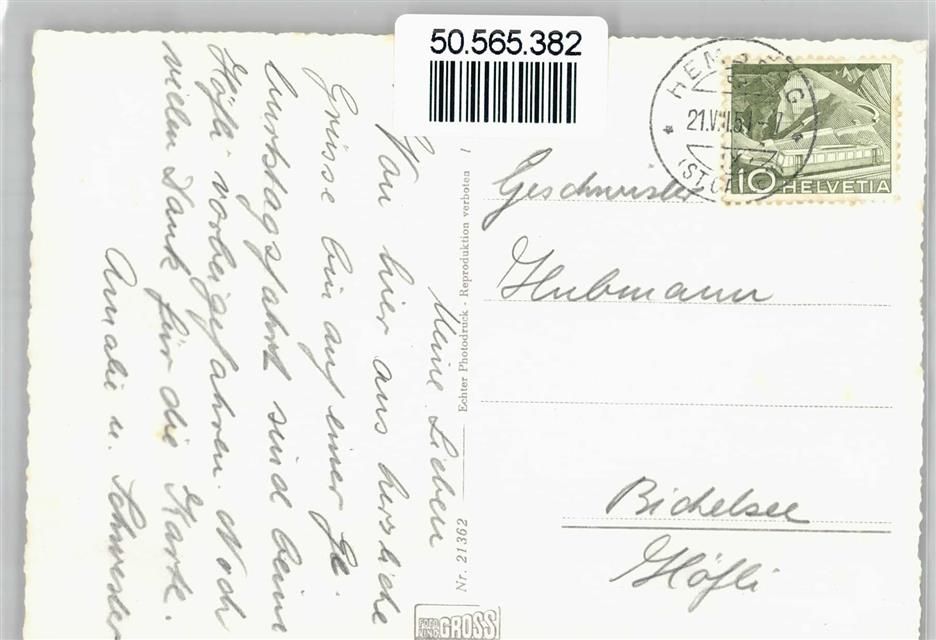 50.565.382
HEMBERG
21.VII.51-17
(ST. GA
10 HELVETIA
Meine Lieben
Von hier aus herzliche
Grüsse bin auf einer Ge-
burtstagsfahrt sind beim
Höfli vorbeigefahren. Noch
vielen Dank für die Karte.
Amalie u. Schwester
Nr. 21362
Echter Photodruck - Reproduktion verboten
1
Geschwister
Hubmann
Bichelsee
Höfli
GROSS